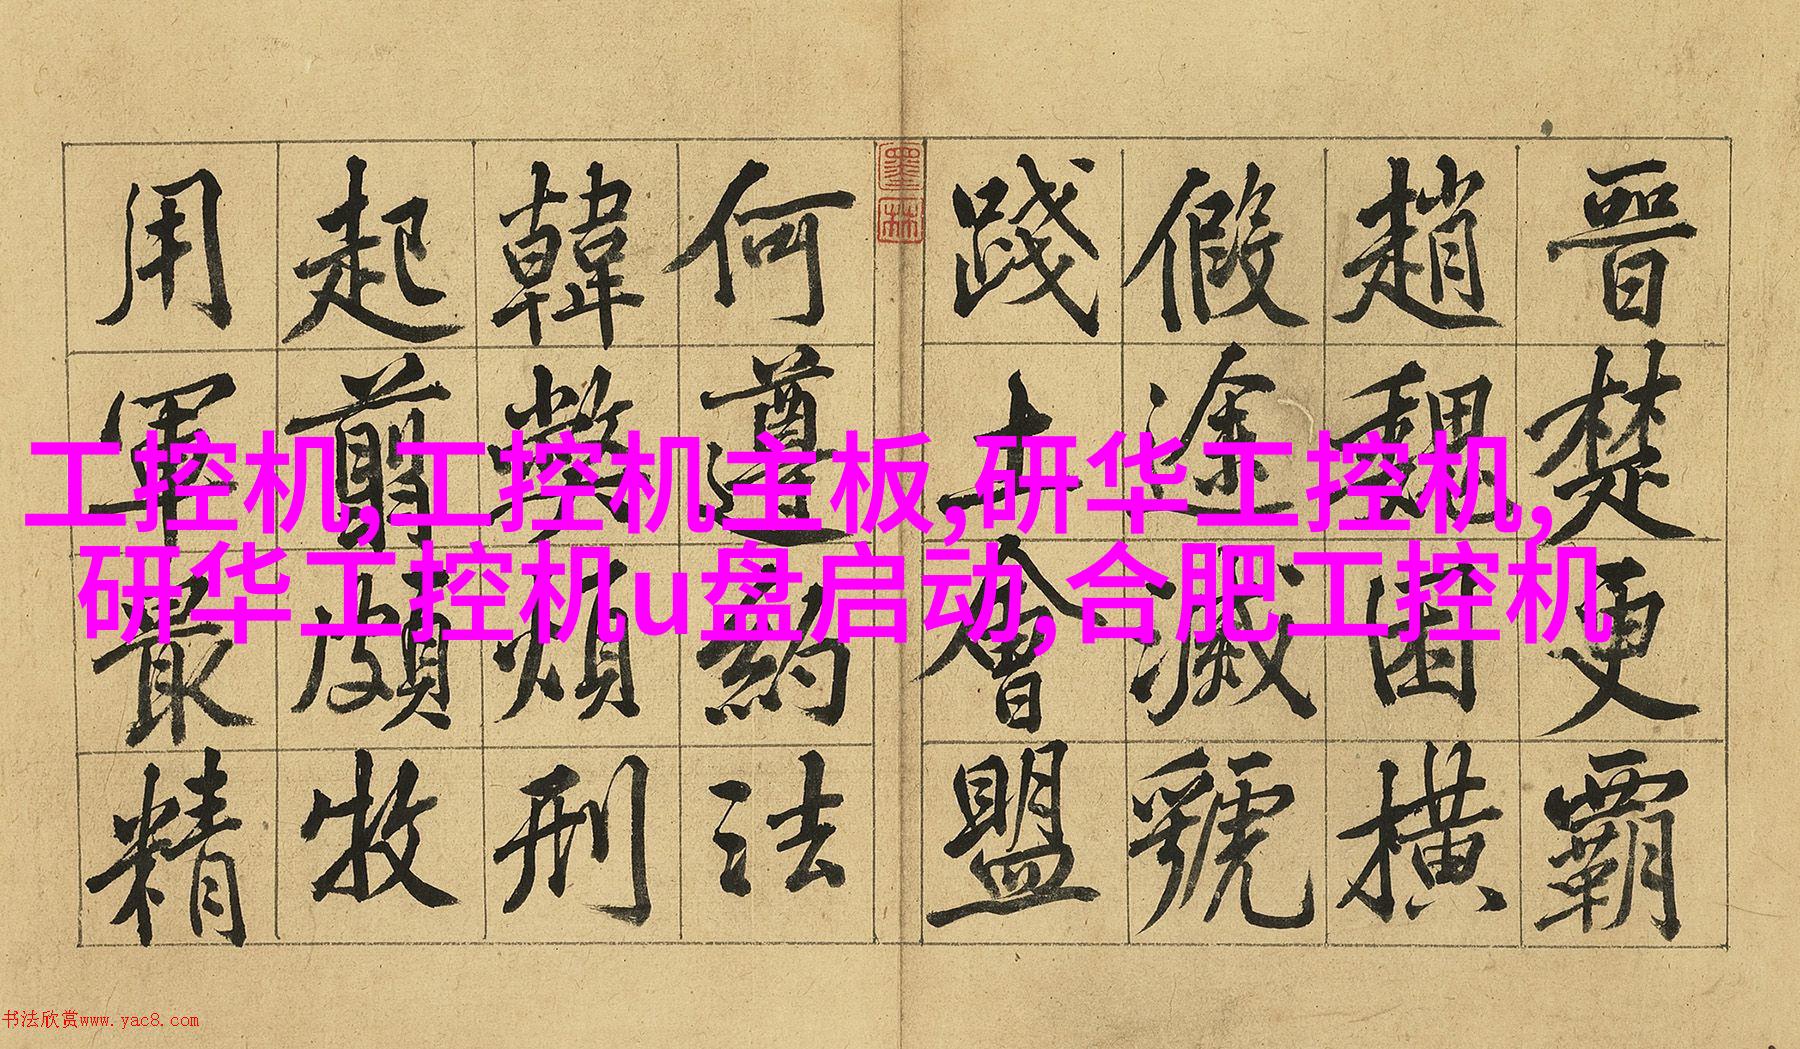 晉楚更霸
趙魏困橫
假途滅虢
踐土會盟
何遵約法
韓弊煩刑
起翦頗牧
用軍最精
墨林
工控机,工控机主板,研华工控机,
研华工控机u盘启动,合肥工控机
书法欣赏www.yac8.com